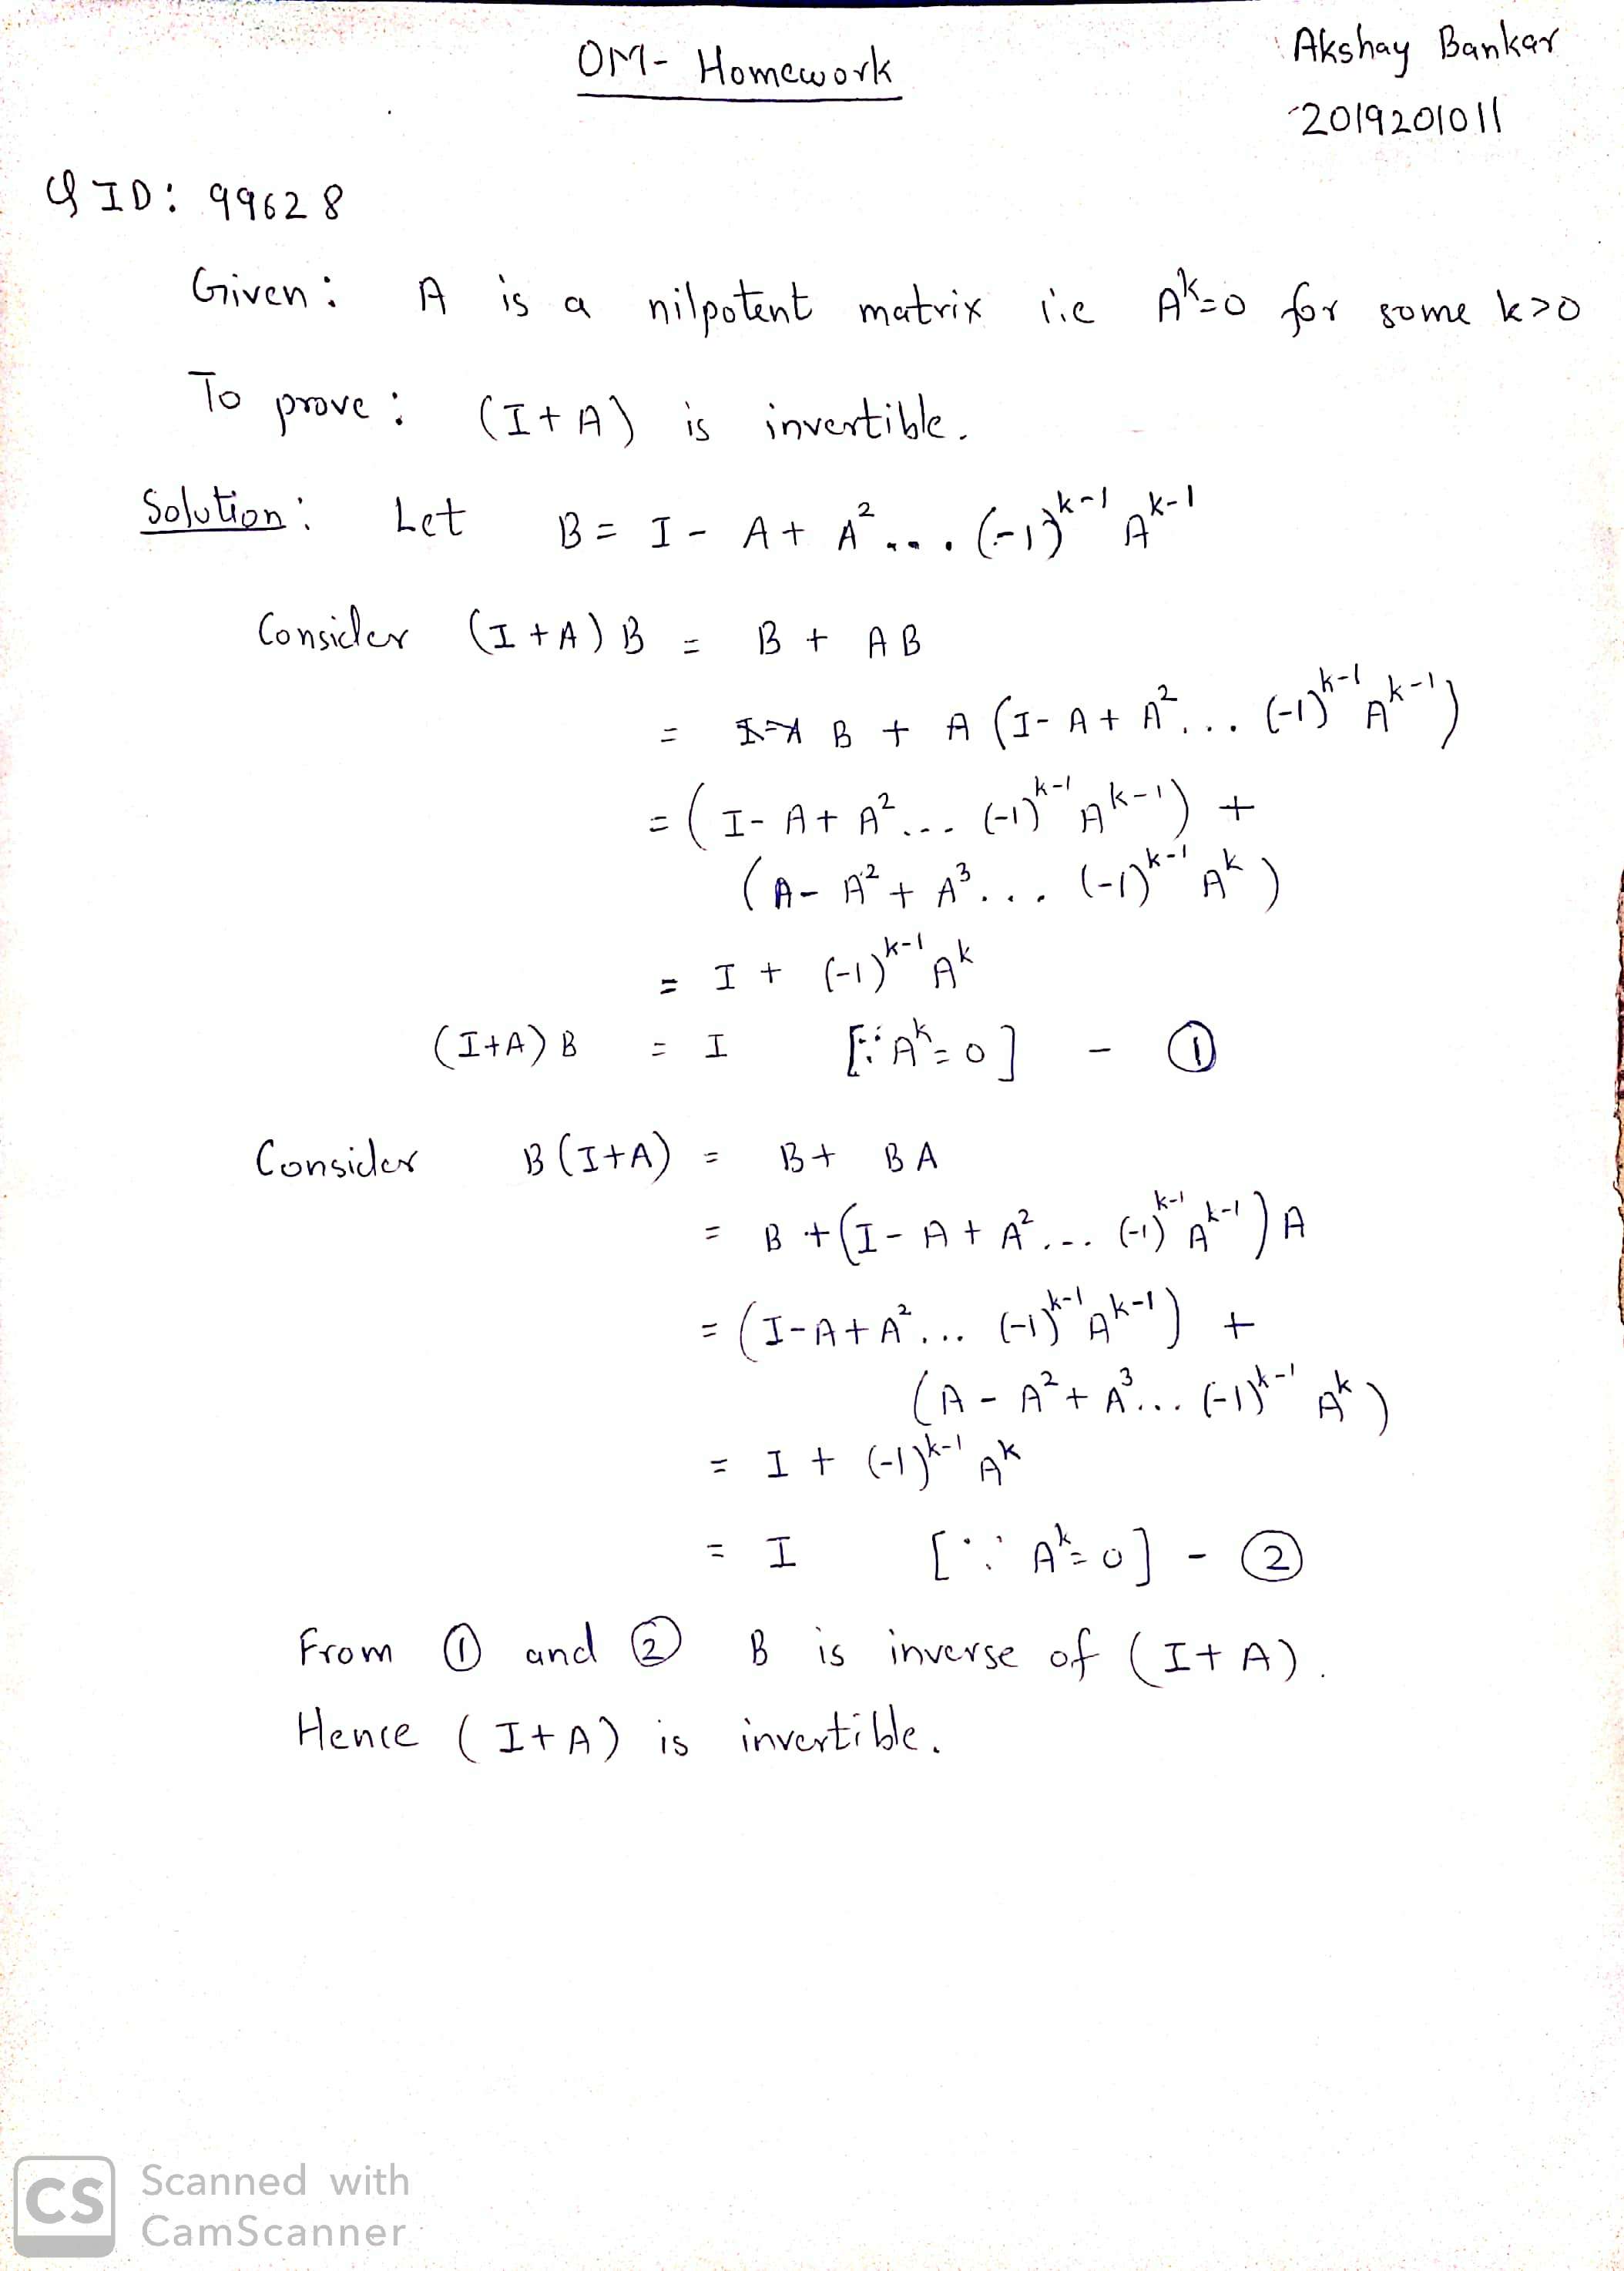 OM- Homework
Akshay Bankar
2019201011
Q ID: 99628
Given: A is a nilpotent matrix i.e A^k=0 for some k>0
To prove: (I+A) is invertible.
Solution: Let B = I - A + A^2 ... (-1)^{k-1} A^{k-1}
Consider (I+A)B = B + AB
= B + A (I - A + A^2 ... (-1)^{k-1} A^{k-1})
= (I - A + A^2 ... (-1)^{k-1} A^{k-1}) +
(A - A^2 + A^3 ... (-1)^{k-1} A^k)
= I + (-1)^{k-1} A^k
(I+A)B = I [∵ A^k=0] - ①
Consider B(I+A) = B + BA
= B + (I - A + A^2 ... (-1)^{k-1} A^{k-1}) A
= (I - A + A^2 ... (-1)^{k-1} A^{k-1}) +
(A - A^2 + A^3 ... (-1)^{k-1} A^k)
= I + (-1)^{k-1} A^k
= I [∵ A^k=0] - ②
From ① and ② B is inverse of (I+A).
Hence (I+A) is invertible.
CS Scanned with
CamScanner